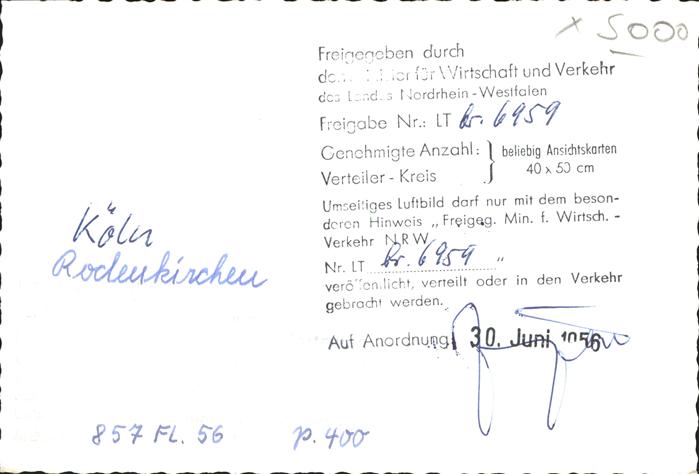 x 5000
Freigegeben durch
für Wirtschaft und Verkehr
des Landes Nordrhein-Westfalen
Freigabe Nr.: LT br. 6959
Genehmigte Anzahl: } beliebig Ansichtskarten
Verteiler-Kreis } 40 x 50 cm
Umseitiges Luftbild darf nur mit dem beson-
deren Hinweis „Freigeg. Min. f. Wirtsch.-
Verkehr NRW
Nr. LT br. 6959 "
veröffentlicht, verteilt oder in den Verkehr
gebracht werden.
Auf Anordnung 30. Juni 1956
Köln
Rodenkirchen
857 FL. 56 p. 400